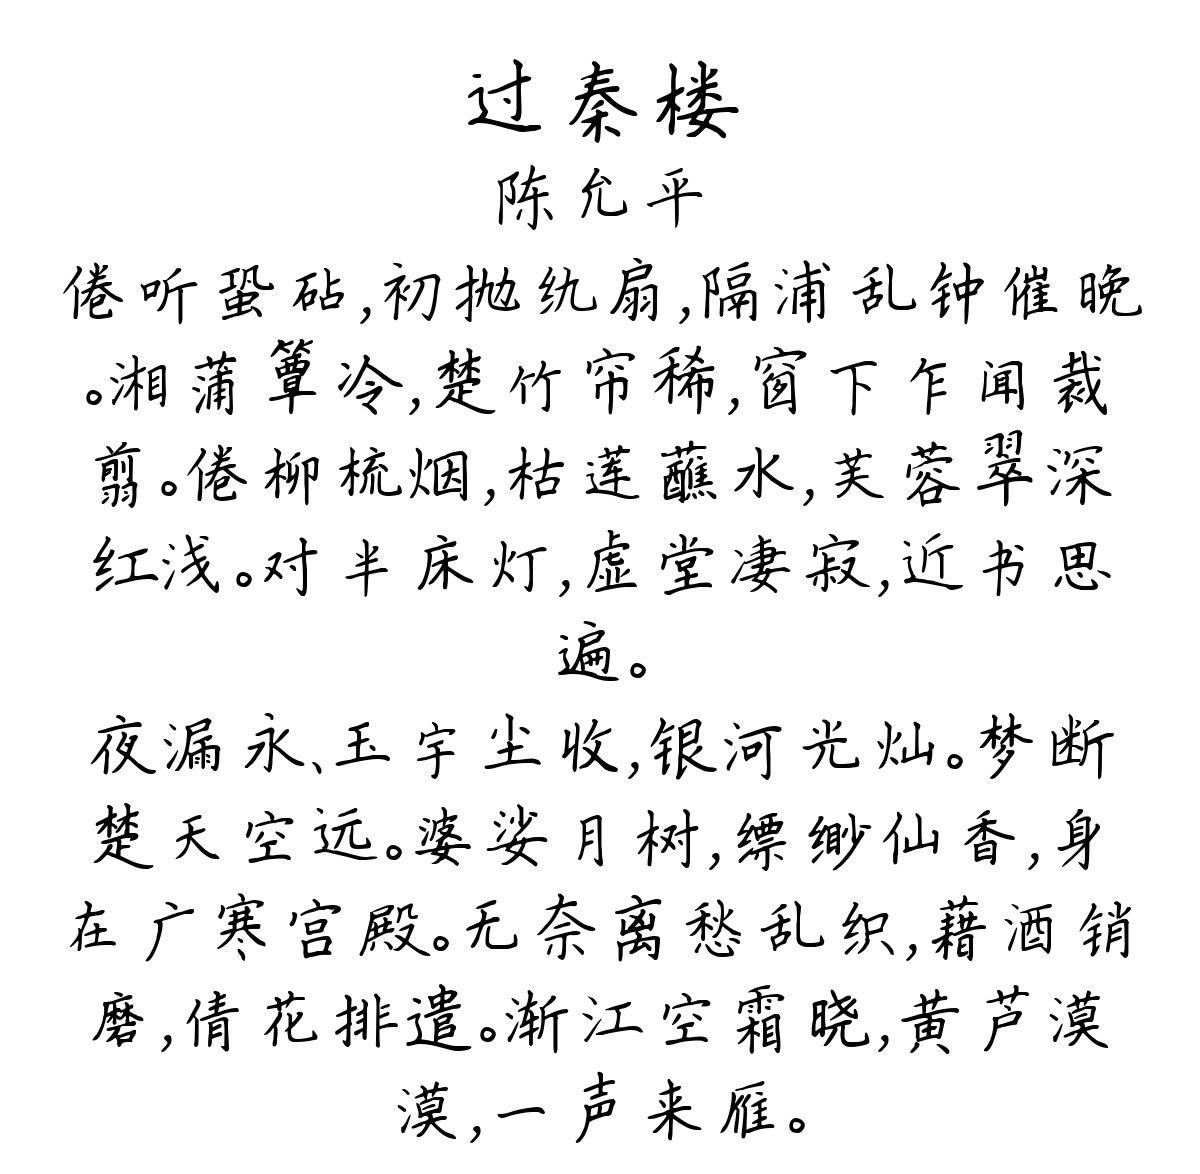 过秦楼
陈允平
倦听蛩砧,初抛纨扇,隔浦乱钟催晚
。湘蒲簟冷,楚竹帘稀,窗下乍闻裁
剪。倦柳梳烟,枯莲蘸水,芙蓉翠深
红浅。对半床灯,虚堂凄寂,近书思
遍。
夜漏永、玉宇尘收,银河光灿。梦断
楚天空远。婆娑月树,缥缈仙香,身
在广寒宫殿。无奈离愁乱织,藉酒销
磨,倩花排遣。渐江空霜晓,黄芦漠
漠,一声来雁。